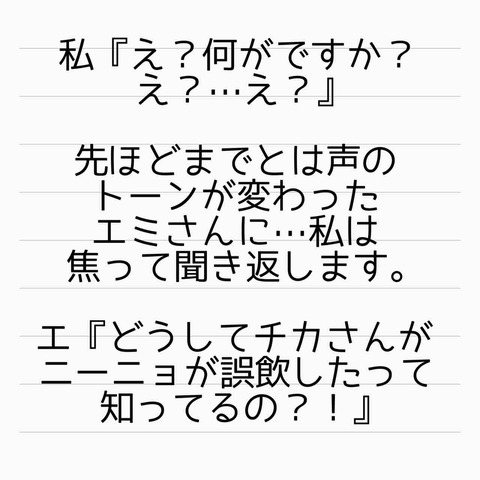 私『え？何がですか？
え？…え？』
先ほどまでとは声の
トーンが変わった
エミさんに…私は
焦って聞き返します。
エ『どうしてチカさんが
ニーニョが誤飲したって
知ってるの？！』